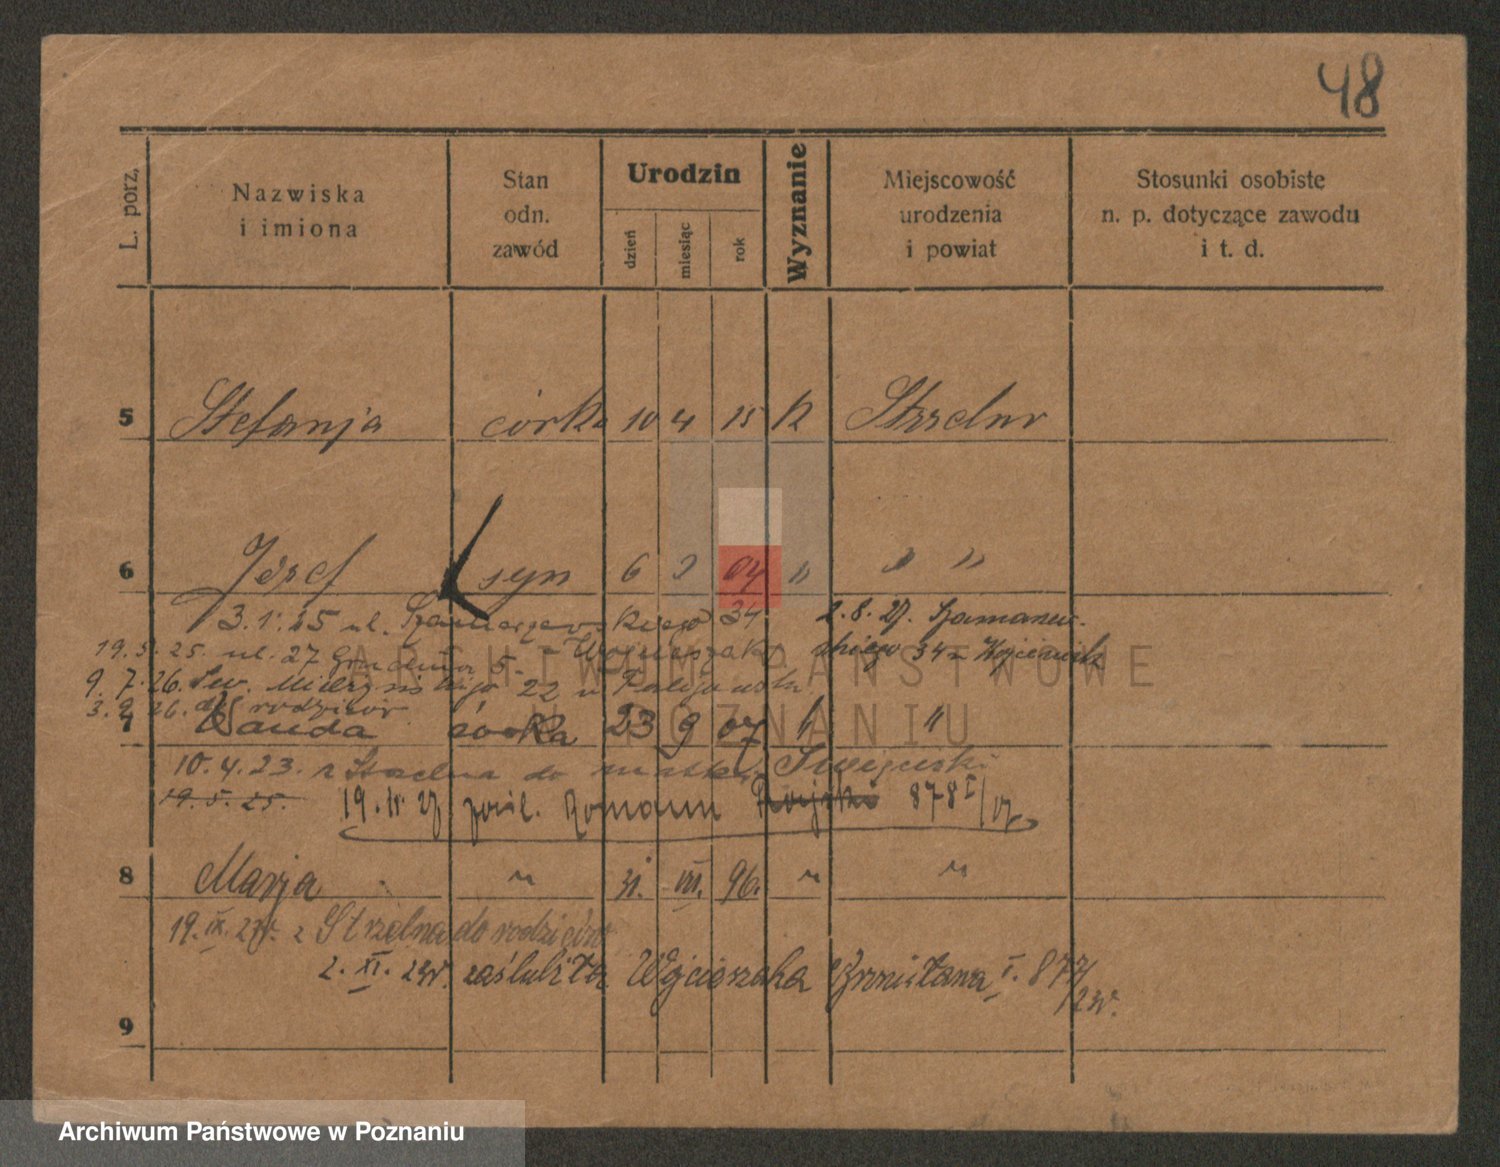 48
L. porz.
Nazwiska i imiona
Stan odn. zawód
Urodzin
dzień miesiąc rok
Wyznanie
Miejscowość urodzenia i powiat
Stosunki osobiste n. p. dotyczące zawodu i t. d.
5 Stefanja córka 10 4 15 k Strzelno
6 Józef syn 6 2 04 " " "
3.1.25 ul. Szamarzewskiego 34 2.8.27. Szamarzew-
19.5.25. ul. 27 Grudnia 5 Wojcieszak skiego 34
9.7.26. Św. 22
3.9.26. do rodziców
7 Wanda córka 23 9 07 k "
10.4.23. z Strzelna do matki
19.5.25. 19. 27 pośl. Roman 878
8 Marja " 31. VIII. 96. " "
19. IX. 23r. z Strzelna do rodziców
2. XI. 23r. zaślubiła Wojcieszaka Bronisława I. 877/23r.
9
ARCHIWUM PAŃSTWOWE
W POZNANIU
Archiwum Państwowe w Poznaniu